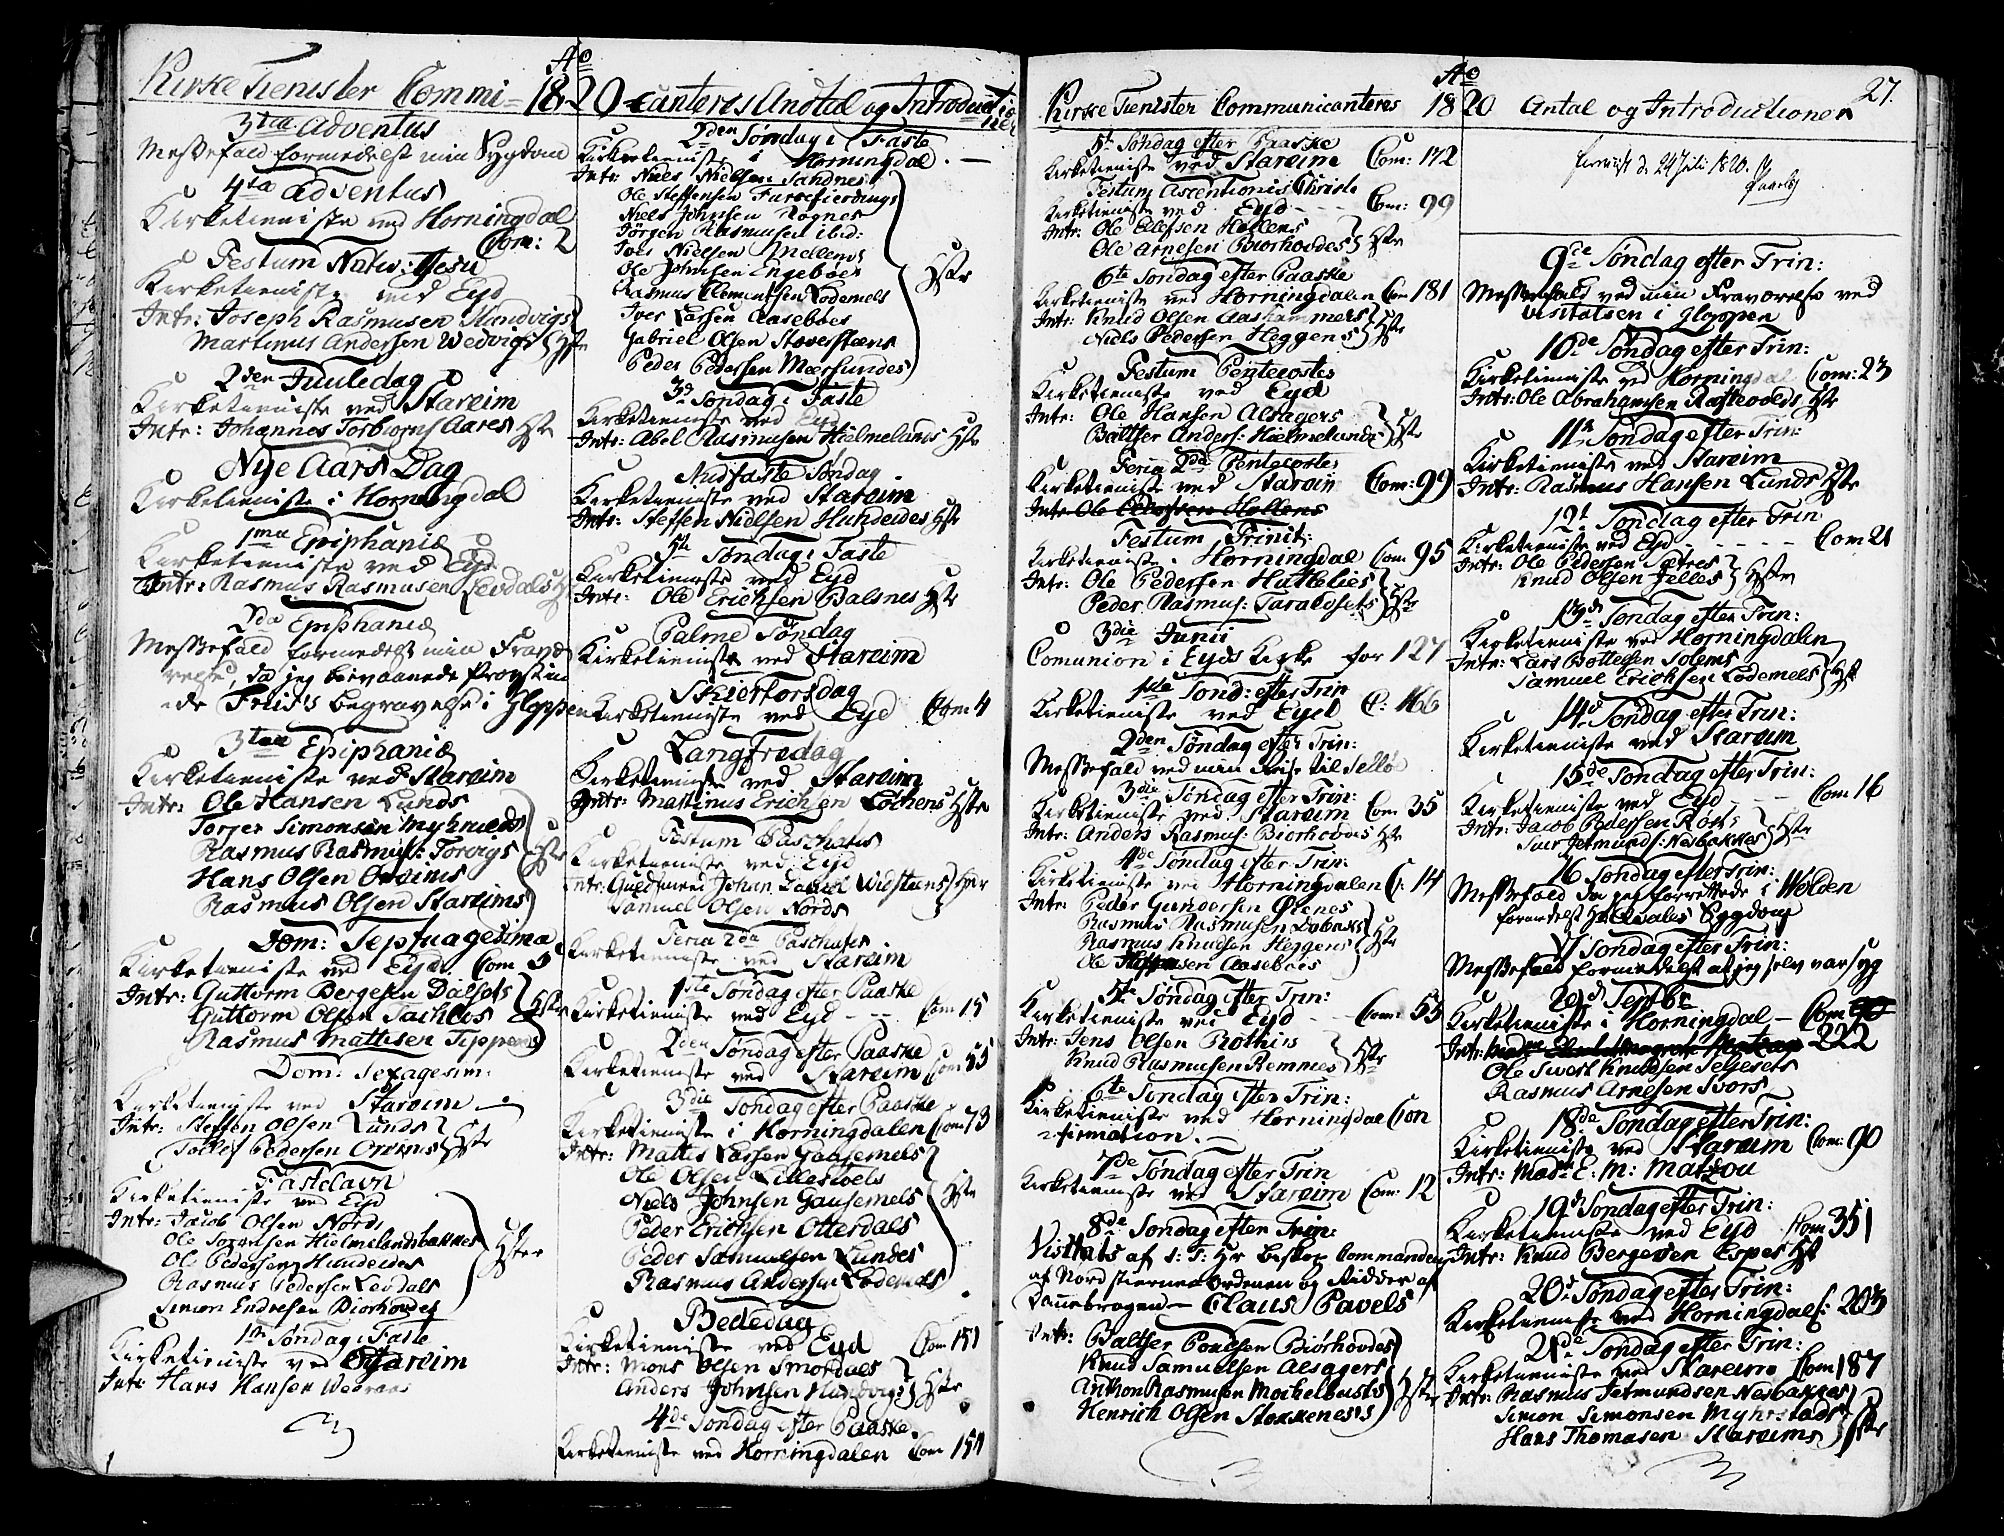 Kirke Tienister Commi= Ao 1820 =canteres Andtal og Introductio
ner
3tia Adventus
Messefald formedelst min Sygdom
4ta Adventus
Kirketieniste ved Horningdal
Com: 2
Festum Nativ: Jesu
Kirketieniste ved Eyd
Intr: Joseph Rasmusen Hundvigs
Martinus Andersen Wedvigs Hstr
2den Juuledag
Kirketieniste ved Stareim
Intr: Johannes Torbiørns Aares Hstr
Nye Aars Dag
Kirketieniste i Horningdal
1ma Epiphaniæ
Kirketieniste ved Eyd
Intr: Rasmus Rasmusen Levdals Hst
2da Epiphaniæ
Messefald formedelst min Fravæ
relse, da jeg bievaanede Provstin
=de Friis's begravelse i Gloppen
3tia Epiphaniæ
Kirketieniste ved Stareim
Intr: Ole Hansen Lunds
Torger Simonsen Myhrields
Rasmus Rasmus: Torvigs
Hans Olsen Oreims
Rasmus Olsen Stareims
Hstr
Dom: Septuagesima
Kirketieniste ved Eyd. Com 5
Intr: Guttorm Bergesen Dalsets
Guttorm Olsen Tachles
Rasmus Mattisen Tippens
Hstr
Dom: Sexagesim:
Kirketieniste ved Stareim
Intr: Steffen Olsen Lunds
Tollef Pedersen Oreims Hstr
Fastelavn
Kirketieniste ved Eyd
Intr: Jacob Olsen Nords
Ole Torgersen Hielmelandsbakkes
Ole Pedersen Hundeides
Rasmus Pedersen Levdals
Simon Endresen Biørhovdes
Hstr
1n Søndag i Faste
Kirketieniste ved Stareim
Intr: Hans Hansen
2den Søndag i Faste
Kirketieniste i Horningdal. —
Intr: Niels Nielsen Sandnes
Ole Steffensen Farsefierdings
Niels Johnsen Rognes
Jørgen Rasmusen ibid:
Iver Nielsen Mellems
Ole Johnsen Engebøes
Rasmus Clementsen Lødemels
Iver Larsen Aasebøes
Gabriel Olsen Støversteens
Peder Pedersen Meersundes
Hstr
3d Søndag i Faste
Kirketieniste ved Eyd
Intr: Abel Rasmusen Hielmelands Hstr
Midfaste Søndag
Kirketieniste ved Stareim
Intr: Steffen Nielsen Hundeides Hstr
5te Søndag i Faste
Kirketieniste ved Eyd
Intr: Ole Erichsen Balsnes Hstr
Palme Søndag
Kirketieniste ved Stareim
Skiertorsdag
Kirketieniste ved Eyd Com 4
Langfredag
Kirketieniste ved Stareim
Intr: Martinus Erichsen Lothens Hstr
Festum Paschatis
Kirketieniste ved Eyd
Intr: Guldsmed Johan Daniel Widsteens
Samuel Olsen Nords
Feria 2da Paschatis
Kirketieniste ved Stareim
1ste Søndag efter Paaske
Kirketieniste ved Eyd - - Com 15
2den Søndag efter Paaske
Kirketieniste ved Stareim Com 55
3die Søndag efter Paaske
Kirketieniste i Horningdalen Com 73
Intr: Mattis Larsen Gausemels
Ole Olsen Lillestøels
Niels Johnsen Gausemels
Peder Erichsen Otterdals
Peder Samuelsen Lundes
Rasmus Andersen Lødemels
Hstr
Bededag
Kirketieniste ved Eyd Com 151
Intr: Mons Olsen Smørdals
Anders Johnsen Hundvigs Hstr
4de Søndag efter Paaske
Kirketieniste ved Horningdalen Com 154
Kirke Tienister Communicanteres Ao 1820 Antal og Introductioner 27.
5t Søndag efter Paaske
Kirketieniste ved Stareim Com: 172
Festum Ascentionis Christi
Kirketieniste ved Eyd - - - Com: 99
Intr: Ole Ellefsen Hollens
Ole Arnesen Biørhovdes Hstr
6te Søndag efter Paaske
Kirketieniste ved Horningdalen Com 181
Intr: Knud Olsen Aashammers
Niels Pedersen Heggens Hstr
Festum Pentecostes
Kirketieniste ved Eyd
Intr: Ole Hansen Alsagers
Baltser Anders: Hielmelands Hstr
Feria 2da Pentecostes
Kirketieniste ved Stareim Com: 99
Intr: Ole Ellefsen Hollens
Festum Trinit:
Kirketieniste i Horningdal Com 95
Intr: Ole Pedersen Huttelies
Peder Rasmus: Taraldsets Hstr
3die Junii
Comunion i Eyds Kirke for 127
1ste Sønd: efter Trin
Kirketieniste ved Eyd C: 166
2den Søndag efter Trin:
Messefald ved min Reise til Selløe
3die Søndag efter Trin:
Kirketieniste ved Stareim Com 35
Intr: Anders Rasmus: Biørhovdes Hstr
4de Søndag efter Trin:
Kirketieniste ved Horningdalen C: 14
Intr: Peder Gundersen Øienes
Rasmus Rasmusen
Rasmus Knudsen Heggens
Ole Steffensen Aasebøes
Hstr
5te Søndag efter Trin:
Kirketieniste ved Eyd - - Com: 55
Intr: Jens Olsen Rothis
Knud Rasmusen Remmes Hstr
6te Søndag efter Trin:
Kirketieniste ved Horningdal Con
=firmation. —
7de Søndag efter Trin
Kirketieniste ved Stareim Com: 12
8de Søndag efter Trin:
Visitats af S: T: Hr Biskop Commandeur
af Nordstiernes Ordenen og Ridder af
Dannebrogen — Claus Pavels
Intr: Baltser Povelsen Biørhovdes
Knud Samuelsen Alsagers
Anthon Rasmusen Mochelbusts
Henrich Olsen Stokkenes's
Hstr
d. 24 Juli 1820.
Pavels
9de Søndag efter Trin:
Messefald ved min Fraværelse ved
Visitatsen i Gloppen
10de Søndag efter Trin:
Kirketieniste ved Horningdal Com: 23
Intr: Ole Abrahamsen Hstr
11te Søndag efter Trin:
Kirketieniste ved Stareim
Intr: Rasmus Hansen Lunds Hstr
12t Søndag efter Trin
Kirketieniste ved Eyd - - - - - Com 21
Intr: Ole Pedersen Sætres
Knud Olsen Jelles Hstr
13de Søndag efter Trin:
Kirketieniste ved Horningdalen
Intr: Lars Bottelsen Solems
Samuel Erichsen Lødemels Hstr
14d Søndag efter Trin:
Kirketieniste ved Stareim
15de Søndag efter Trin:
Kirketieniste ved Eyd - - - Com: 16
Intr: Jacob Pedersen Røsis
Iver Jetmunds: Nesbakkes Hstr
16 Søndag efter Trin:
Messefald da jeg forrettede i Welden
formedelst Hr Sygdom
17 Søndag efter Trin:
Messefald formedelst at jeg selv var syg
20d Septbr
Kirketieniste i Horningdal — Com 222
Intr:
Ole Sivert Knudsen Seljesets
Rasmus Arnesen Svors
18de Søndag efter Trin:
Kirketieniste ved Stareim Com: 90
Intr: Made E: M: Matzou
19d Søndag efter Trin:
Kirketieniste ved Eyd Com 351
Intr: Knud Bergesen Espes Hst
20d Søndag efter Trin:
Kirketieniste ved Horningdal C: 203
21de Søndag efter Trin:
Kirketieniste ved Stareim Com 187
Intr: Rasmus Jetmundsen Nesbakkes
Simon Simonsen Myhrstads
Hans Thomasen Stareims
Hstr